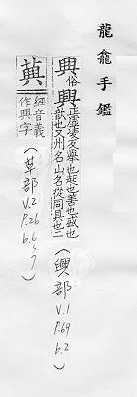 龍龕手鑑
興俗興正虛淩反舉也起也善也盛也
歆也又州名山名從同具也二
V.1 P.69 b.2)
經音義
作興字
(草部 V.2 P.26 b.6~7)